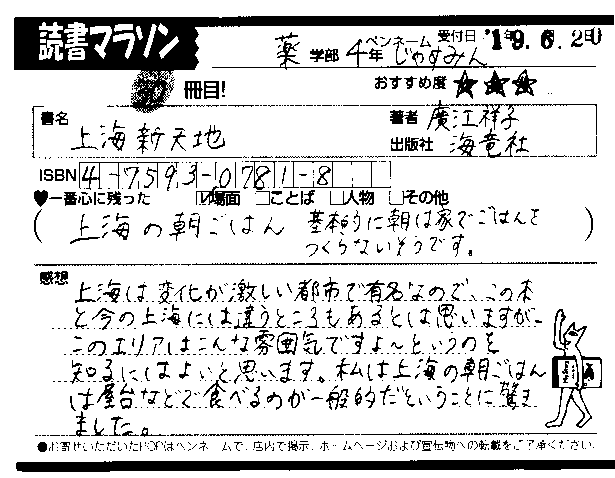 読書マラソン
薬学部4年 ペンネーム じゃすみん 受付日 '19.6.20
冊目!
おすすめ度 ★★★
書名 上海新天地
著者 廣江祥子
出版社 海竜社
ISBN 4-7593-0781-8
♥一番心に残った ☑場面 □ことば □人物 □その他
(上海の朝ごはん 基本的に朝は家でごはんを
つくらないそうです。)
感想
上海は変化が激しい都市で有名なので、この本
と今の上海には違うところもあるとは思いますが、
このエリアはこんな雰囲気ですよ~というのを
知るにはよいと思います。私は上海の朝ごはん
は屋台などで食べるのが一般的だということに驚き
ました。
●お寄せいただいたPOPはペンネームで、店内で掲示、ホームページおよび宣伝物への転載をご了承ください。